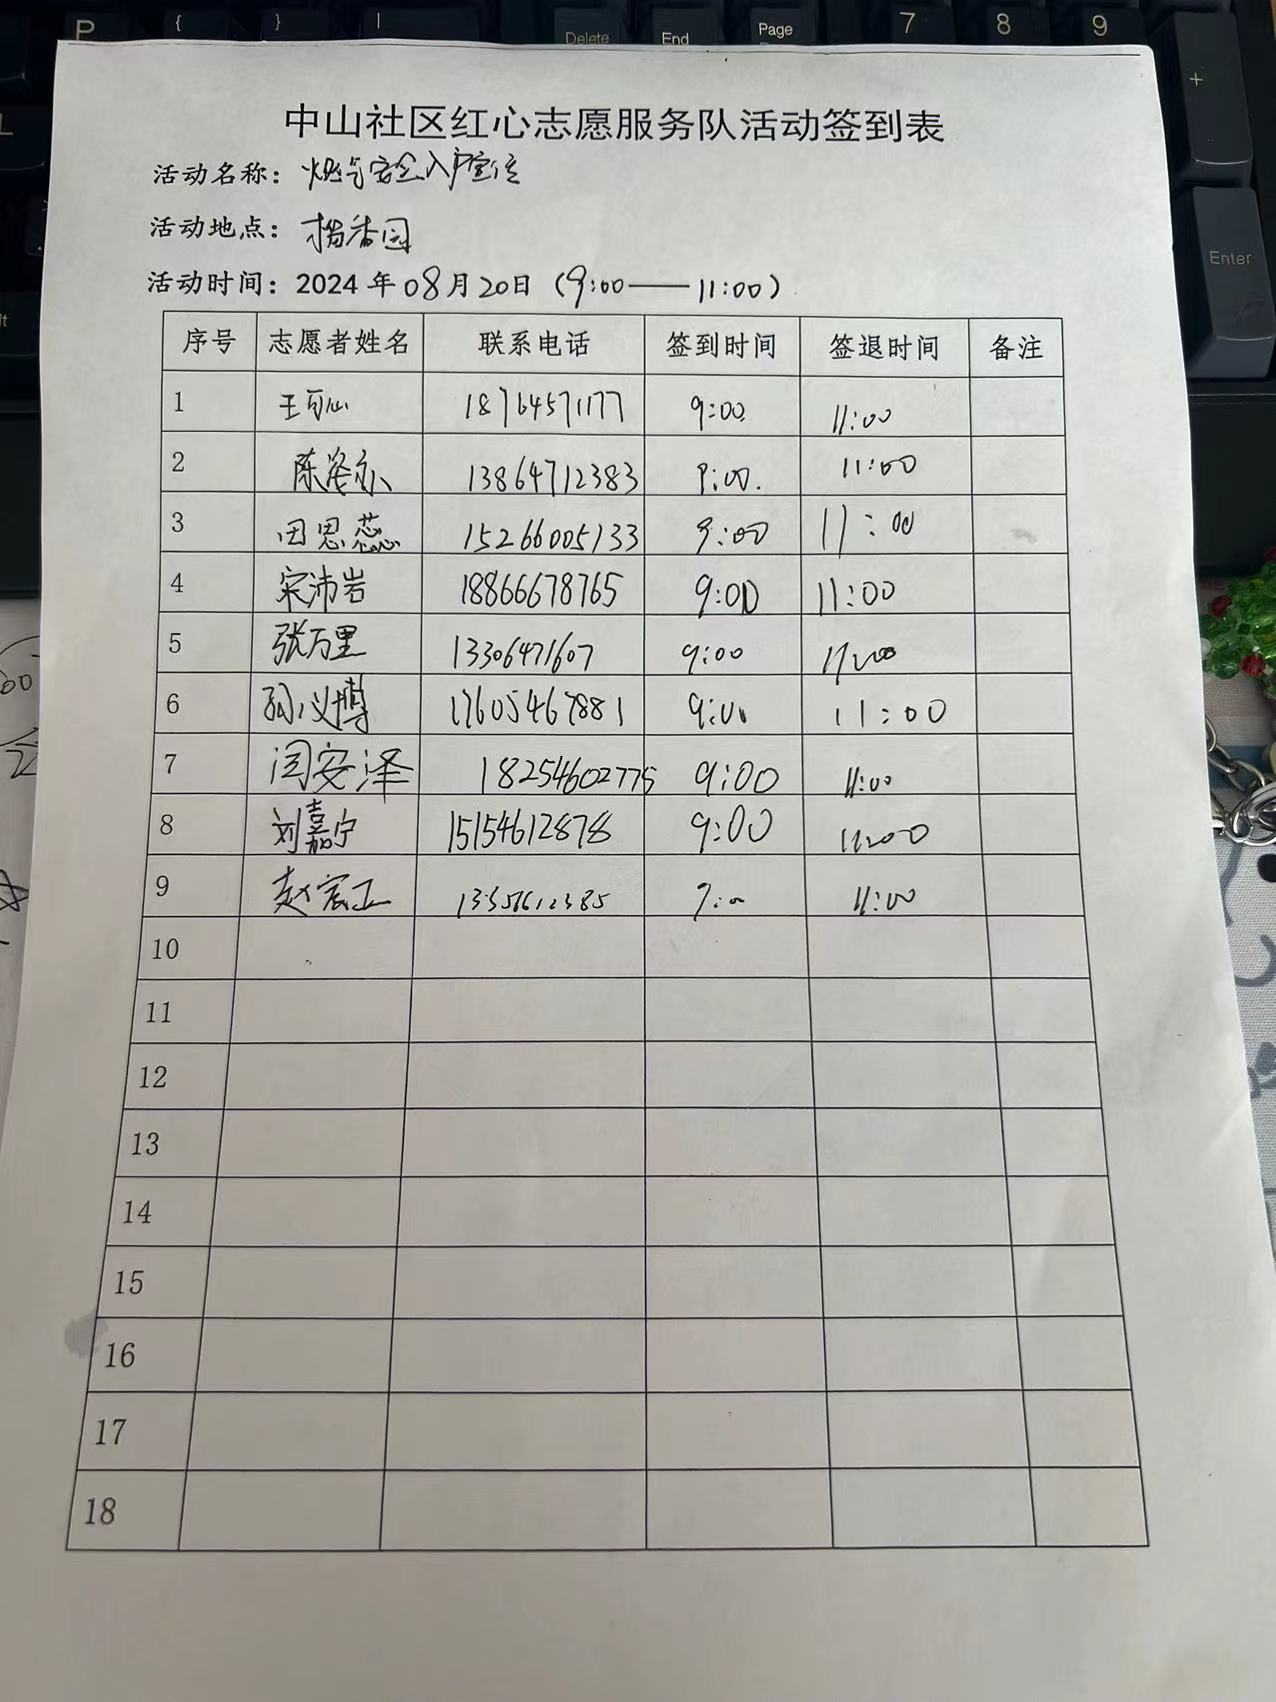 P { } | 7 8 9
Delete End Page
+
Enter
中山社区红心志愿服务队活动签到表
活动名称：燃气安全入户宣传
活动地点：香园
活动时间：2024年08月20日（9:00——11:00）
序号 志愿者姓名 联系电话 签到时间 签退时间 备注
1 王可心 18764571177 9:00 11:00
2 陈泽 13864712383 9:00. 11:00
3 田思蕊 15266005133 9:00 11:00
4 宋沛岩 18866678765 9:00 11:00
5 张万里 13306471607 9:00 11:00
6 孙义博 17605467881 9:00 11:00
7 闫安泽 18254602775 9:00 11:00
8 刘嘉宁 15154612878 9:00 11:00
9 赵宸正 9:00 11:00
10
11
12
13
14
15
16
17
18